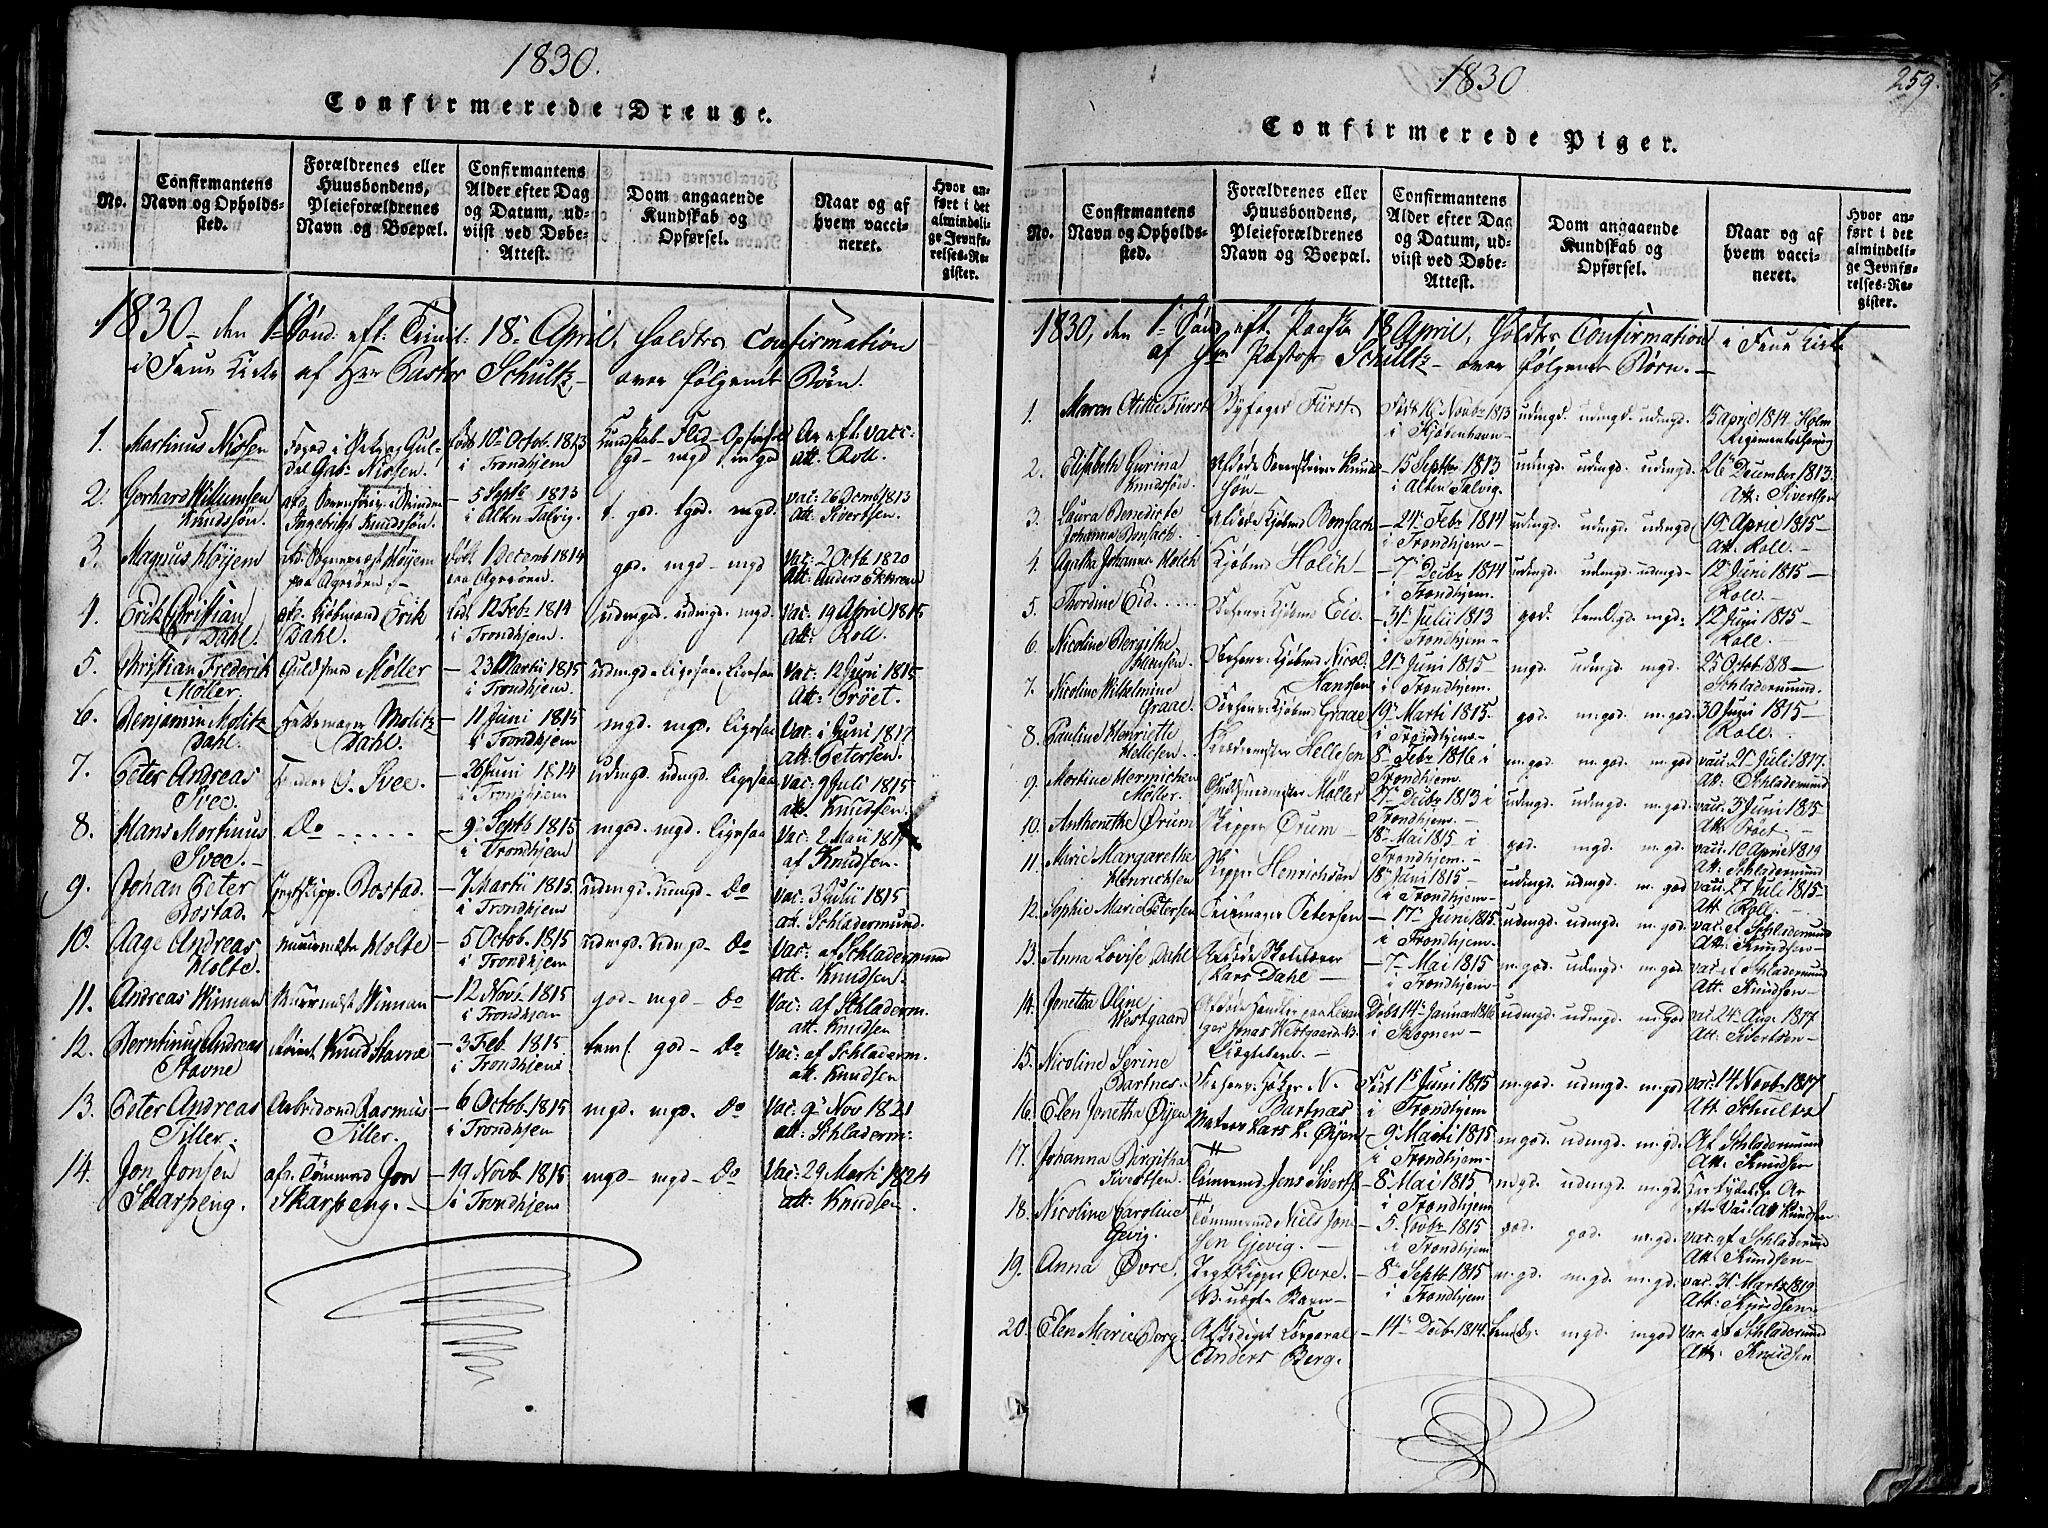 1830.
Confirmerede Drenge.
No.
Confirmantens Navn og Opholds-sted.
Forældrenes eller Huusbondens, Plejeforældrenes Navn og Boepæl.
Confirmantens Alder efter Dag og Datum, ud-viist ved Døbe-Attest.
Dom angaaende Kundskab og Opførsel.
Naar og af hvem vacci-neret.
Hvor an-ført i det almindeli-ge Jevnfø-relses-Re-gister.
1830 - den 1ste Sönd: eft: Trinit: 18de April, holdtes Confirmation
i Frue Kirke af Herr Pastor Schultz - over følgende Börn.
1. Martinus Nissen
Født 10de Octob. 1813
i Trondhjem
Kundskab - Flid - Opførsel
gd - mgd - mgd
An eft: vacc:
att: Roll.
2. Gerhard Willumsen
Knudssön.
Ingebrigt Knudssön.
- 5 Septb 1813
i Alten Talvig.
t. god. tgod. mgd.
vac: 26 Decmb 1813
Att: Sivertsen.
3. Magnus Höyem
paa Ageröen
Födt 1 Decemb 1814
paa Ageröen.
god. mgd - mgd
Vac: 2 Octb. 1820
4. Erik Christian
Dahl.
Erik
Dahl.
Födt 12 Febr 1814
i Trondhjem.
udmgd. udmgd. mgd.
Vac: 19 April 1815
Att: Roll.
5. Christian Frederik
Möller.
Möller
- 23 Martii 1815
i Trondhjem.
udmgd - ligesaa - ligesaa
Vac: 12 Juni 1815
Att: Tröet.
6. Benjamin Molitz
Dahl.
Hattemager Molitz
Dahl.
- 11 Juni 1815
i Trondhjem
mgd. mgd. ligesaa
Vac: i Juni 1817
att: Petersen.
7. Peter Andreas
Svee.
Svee.
- 26 Juni 1814
i Trondhjem
udmgd. udmgd. ligesaa
Vac: 9 Juli 1815
att. Knudsen.
8. Hans Martinus
Svee. -
Do .....
- 9de Septb 1815
i Trondhjem
mgod. mgd. ligesaa
Vac: 2 Maii 1817
af Knudsen.
9. Johan Peter
Rostad.
Rostad.
- 7 Martii 1815.
i Trondhjem
udmgd. udmgd - Do
Vac: 3 Julii 1815
att. Schladermund.
10. Aage Andreas
Holte.
Holte
- 5 Octob. 1815
i Trondhjem
udmgd. udmgd - Do
Vac: af Schladermund
att. Knudsen.
11. Andreas Winman
Winman
- 12 Novb 1815
i Trondhjem
god - mgd - Do
Vac: af Schladerm.
att. Knudsen
12. Berntinus Andreas
Stavne
Knud Stavne
- 3 Feb. 1815
i Trondhjem
teml. god - Do
Vac: af Schladerm.
att. Knudsen
13. Peter Andreas
Tiller.
Arbeidsmd Rasmus
Tiller.
- 6 Octob. 1815
i Trondhjem
mgd. mgd. Do
Vac: 9de Nov 1821
att: Schladerm:
14. Jon Jonsen
Skarpeng.
afs. Tömmrmd Jon
Skarpeng. -
- 19 Novb 1815
i Trondhjem
mgd - mgd - Do
Vac: 29 Marti 1824
att: Knudsen.
1830
259.
Confirmerede Piger.
No.
Confirmantens Navn og Opholds-sted.
Forældrenes eller Huusbondens, Plejeforældrenes Navn og Boepæl.
Confirmantens Alder efter Dag og Datum, ud-viist ved Døbe-Attest.
Dom angaaende Kundskab og Opførsel.
Naar og af hvem vacci-neret.
Hvor an-ført i det almindeli-ge Jevnfø-relses-Re-gister.
1830, den 1ste Sönd. eft. Paaske 18 April, holdtes Confirmation i Frue Kirke
af Hrr Pastor Schultz - over følgende Börn. -
1. Maren Otitte Fürst
Byfoged Fürst
Födt 16 Novbr 1813
i Kjöbenhavn -
udmgd. udmgd. udmgd.
15 April 1814 Holm
Regimentschirurg
2. Elisabeth Gurina
Knudssön.
- 15 Septbr 1813
i Alten Talvig.
udmgd. udmgd. udmgd.
26 December 1813.
Att: Sivertsen
3. Laura Benedicte
Johanna Bonsach.
Kjöbmd Bonsach
- 24 Febr 1814
i Trondhjem -
udmgd. udmgd. udmgd
19 April 1815 -
Att. Roll. -
4. Agatha Johanna Holch
Kjöbmd Holch -
- 7de Decbr 1814
i Trondhjem.
udmgd. udmgd. udmgd -
12 Juni 1815 -
Roll. -
5. Thordine Eid .....
Kjöbmd Eid.
- 31te Julii 1813
i Trondhjem -
god. temlig. mgd.
12 Juni 1815 -
Roll.
6. Nicoline Bergithe
Hansen.
Kjöbmd Nicol.
Hanssen
21de Juni 1815 -
i Trondhjem -
mgd. udmgd. mgd.
25 Octob. 1818 -
Schladermund.
7. Nicoline Wilhelmine
Graae.
Kjöbmd Graae
19de Marti 1815.
i Trondhjem -
god. m:god. m:god.
30 Juni 1815 -
Roll.
8. Pauline Henriette
Hellesen.
Hellesen
8de Febr 1816 i
Trondhjem.
m:god. m:god. m:god
vac: 21 Juli 1817.
Att. Schladermund
9. Martine
Möller.
Guldsmedmester Möller
27de Decbr 1813 i
Trondhjem.
udmgd. udmgd. m:god.
vac: 3 Juni 1815
Att. Tröet. -
10. Anthonethe Örum
Skipper Örum -
18de Mai 1815 i
Trondhjem. -
god. mgd. m:gd.
vac: 10 April 1819
Att. Schladermund
11. Marie Margarethe
Henrichsen
Skipper Henrichsen
18de Juni 1815 -
i Trondhjem
udmgd. udmgd. m:god
vac: 27 Juli 1815 -
Att. Roll -
12. Sophie Marie Petersen
Petersen
- 17de Juni 1815.
i Trondhjem.
udmgd. udmgd. m:god
vac. af Schladermund
Att. Knudsen -
13. Anna Lovise Dahl
Afdöde Skolelærer
Lars Dahl -
- 7de Mai 1815
i Trondhjem -
m:god. udmgd. m:god
vac af Schladermund
Att. Knudsen -
14. Jonetha Oline
Westgaard
Afdöde Handler paa Levan
ger Jonas Westgaard
Uægtebarn. -
Döbt 14de Januar 1816
i Skognen -
udmgd. udmgd. m:god
vac 24 Aug. 1817
Att. Sivertsen -
15. Nicoline Serine
Bartnes.
Höker N -
Bartnæs
Födt 15 Juni 1815
i Trondhjem
m:god. udmgd. m:gd
vac: 14 Novbr 1817
Att: Schultz
16. Elen Jonetha Öyen
Matros Lars L. Öyen
- 9de Marti 1815
i Trondhjem -
m:god. udmgd. m:gd.
Af Schladermund
Att. Knudsen
17. Johanna Birgitha
Sivertsen.
Tömrmd Jens Sivertsen
- 8de Mai 1815
i Trondhjem
m:gd. udmgd. m:gd.
Har tydelige Ar
efter Vac: Att Knudsen
18. Nicoline Caroline
Gevig.
Tömmermd Niels Jon-
sen Gjevig. -
- 5. Novbr 1815
i Trondhjem
god. god. m:gd.
vac. af Schladermund
Att. Knudsen -
19. Anna Övre.
Jægtskipper Övre.
NB. uægte Barn -
- 8de Septbr 1815
i Trondhjem
m:gd. m:gd. m:gd.
vac. 31 Marts 1819
Att: Knudsen -
20. Elen Marie Berg.
Afskediget Corporal
Anders Berg.
- 14de Decbr 1814.
teml:g: mgd. mgod
Vac. af Schladermund
Att. Knudsen